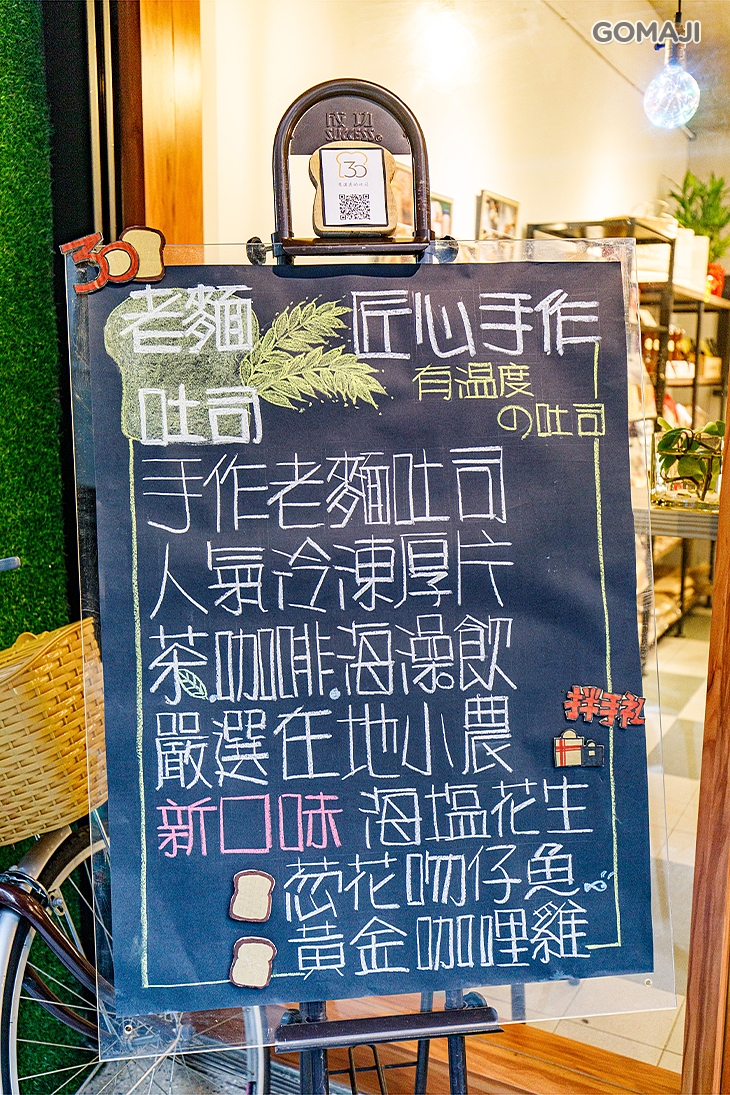 GOMAJI
SUCCESS
30
有溫度的吐司
30
老麵
吐司
匠心手作
有温度
の吐司
手作老麵吐司
人氣冷凍厚片
茶.咖啡.海澡飲
嚴選在地小農
拌手礼
新口味 海塩花生
葱花吻仔魚
黃金咖哩雞